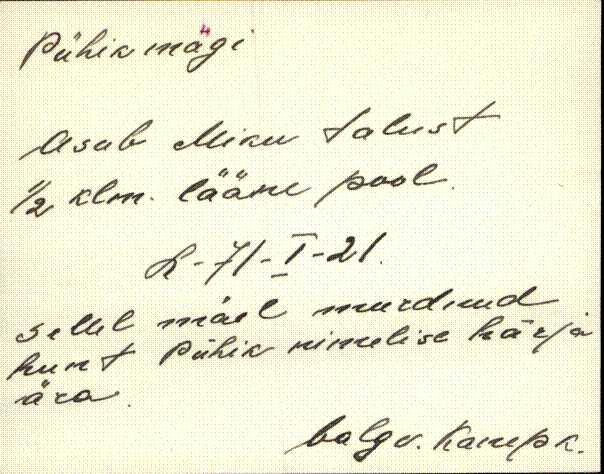 Pühikmägi
Asub Miku talust
1/2 klm. lääne pool.
L-71-I-21.
Sellel mäel murdnud
hunt Pühik nimelise härja
ära.
Valgv. Kamp k.